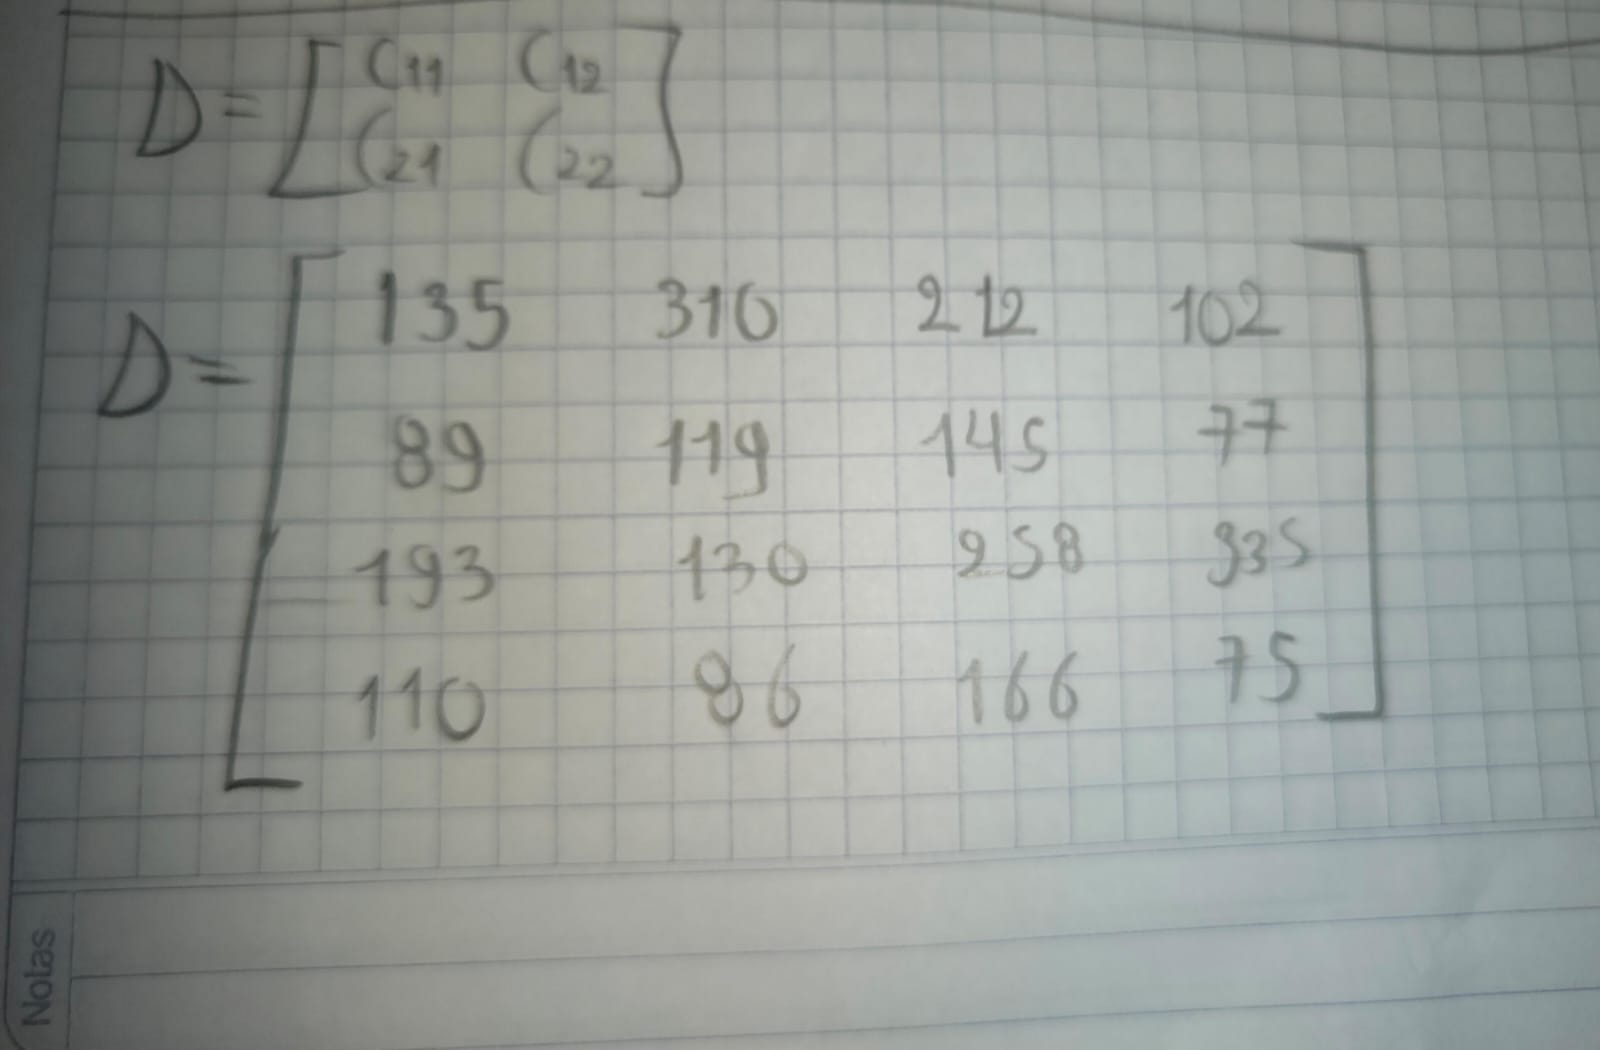 D = [ C11 C12
C21 C22 ]
D = [ 135 310 212 102
89 119 145 77
193 130 258 335
110 86 166 75 ]
Notas